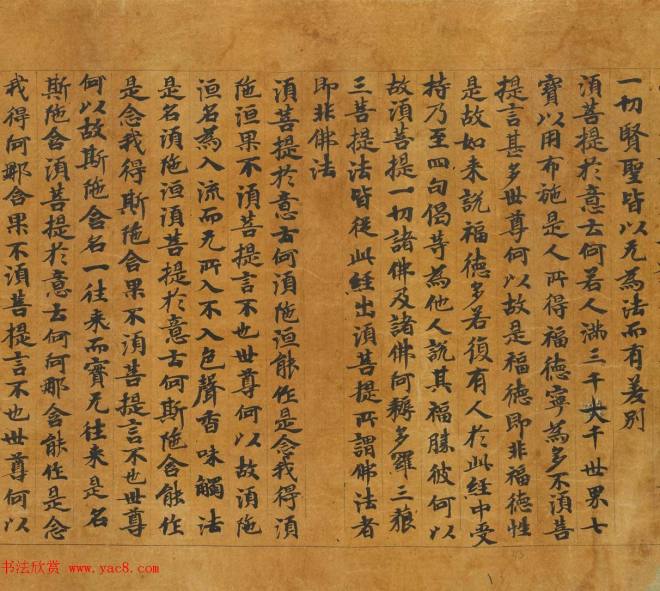 一切賢聖皆以无為法而有差別
湏菩提扵意云何若人滿三千大千世界七
寶以用布施是人所得福德寧為多不湏菩
提言甚多世尊何以故是福德即非福德性
是故如来說福德多若復有人扵此經中受
持乃至四句偈等為他人說其福勝彼何以
故湏菩提一切諸佛及諸佛阿耨多羅三藐
三菩提法皆從此經出湏菩提所謂佛法者
即非佛法
湏菩提扵意云何湏陁洹能作是念我得湏
陁洹果不湏菩提言不也世尊何以故湏陁
洹名為入流而无所入不入色聲香味觸法
是名湏陁洹湏菩提扵意云何斯陁含能作
是念我得斯陁含果不湏菩提言不也世尊
何以故斯陁含名一往来而實无往来是名
斯陁含湏菩提扵意云何阿那含能作是念
我得阿那含果不湏菩提言不也世尊何以
书法欣赏 www.yac8.com